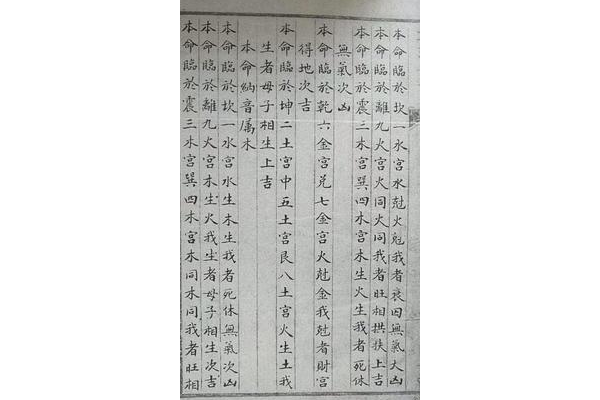 本命臨於坎一水宮水尅火尅我者衰因無氣大凶
本命臨於離九火宮火同火同我者旺相拱扶上吉
本命臨於震三木宮巽四木宮木生火生我者死休
無氣次凶
本命臨於乾六金宮兌七金宮火尅金我尅者財宮
得地次吉
本命臨於坤二土宮中五土宮艮八土宮火生土我
生者母子相生上吉
本命納音屬木
本命臨於坎一水宮水生木生我者死休無氣次凶
本命臨於離九火宮木生火我生者母子相生次吉
本命臨於震三木宮巽四木宮木同木同我者旺相